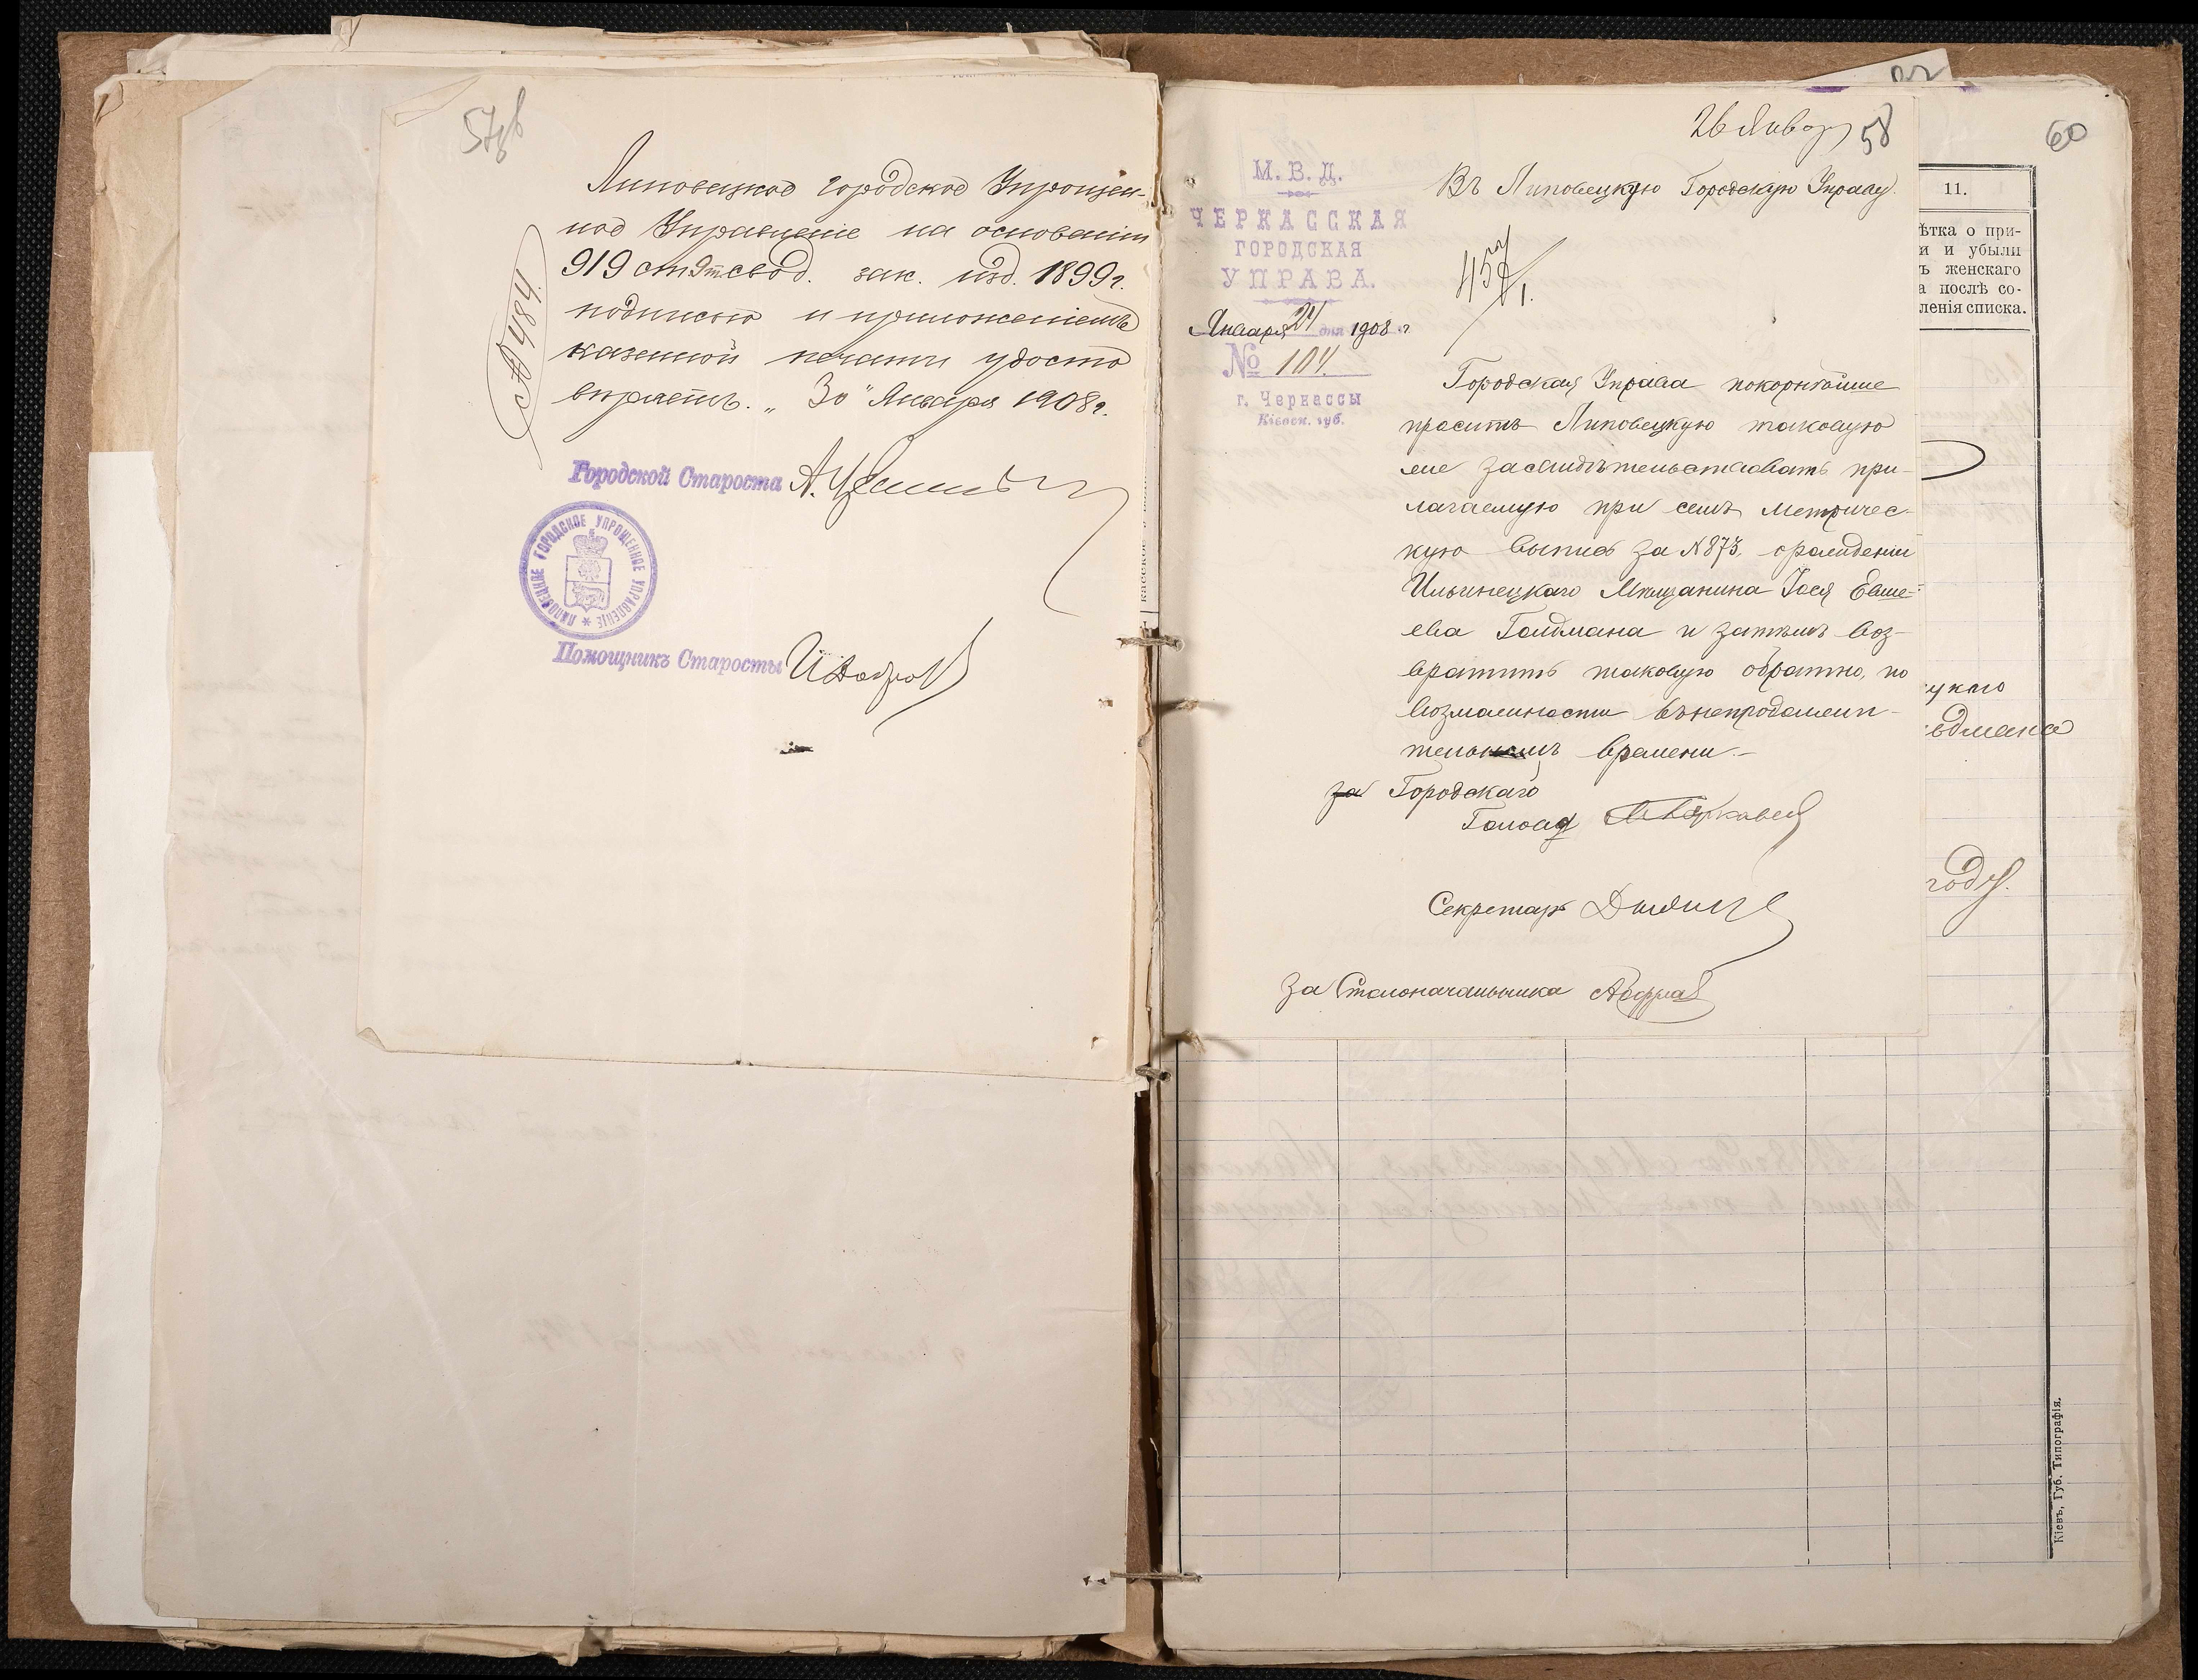 57об
Липовецкое городское Упрощен-
ное Управление на основании
919 ст 9т свод. зак. изд. 1899г.
подписью и приложеніемъ
казенной печати удосто
вѣряетъ. „30" Января 1908г.
№ 484.
Городской Староста А.
ЛИПОВЕЦКОЕ ГОРОДСКОЕ УПРОЩЕННОЕ УПРАВЛЕНІЕ *
Помощникъ Старосты
26 Январ
58
60
М. В. Д.
ЧЕРКАССКАЯ
ГОРОДСКАЯ
УПРАВА.
Января 24 дня 1908 г
№ 104.
г. Черкассы
Кіевск. губ.
Въ Липовецкую Городскую Управу.
457/1.
Городская Управа покорнѣйше
проситъ Липовецкую таковую
же засвидѣтельствовать при-
лагаемую при семъ метричес-
кую выпись за №873, о рожденіи
Ильинецкаго Мѣщанина Іося Евше-
ева Гольдмана и затѣмъ воз-
вратить таковую обратно, по
возможности въ непродолжи-
тельномъ времени.-
за Городскаго
Голову
Секретарь
За Столоначальника
11.
ѣтка о при-
и и убыли
ъ женскаго
а послѣ со-
ленія списка.
уцкаго
едмана
году.
Кіевъ, Губ. Типографія.